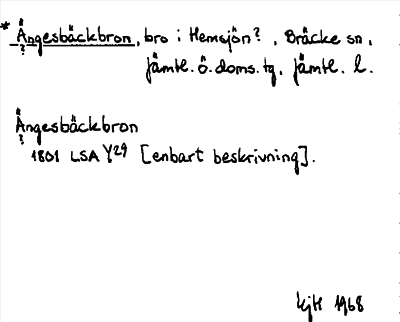 * Ängesbäckbron, bro i Hemsjön?, Bräcke sn,
?
Jämtl. ö. doms. tg, Jämtl. l.
Ängesbäckbron
?
1801 LSA Y29 [enbart beskrivning].
1968